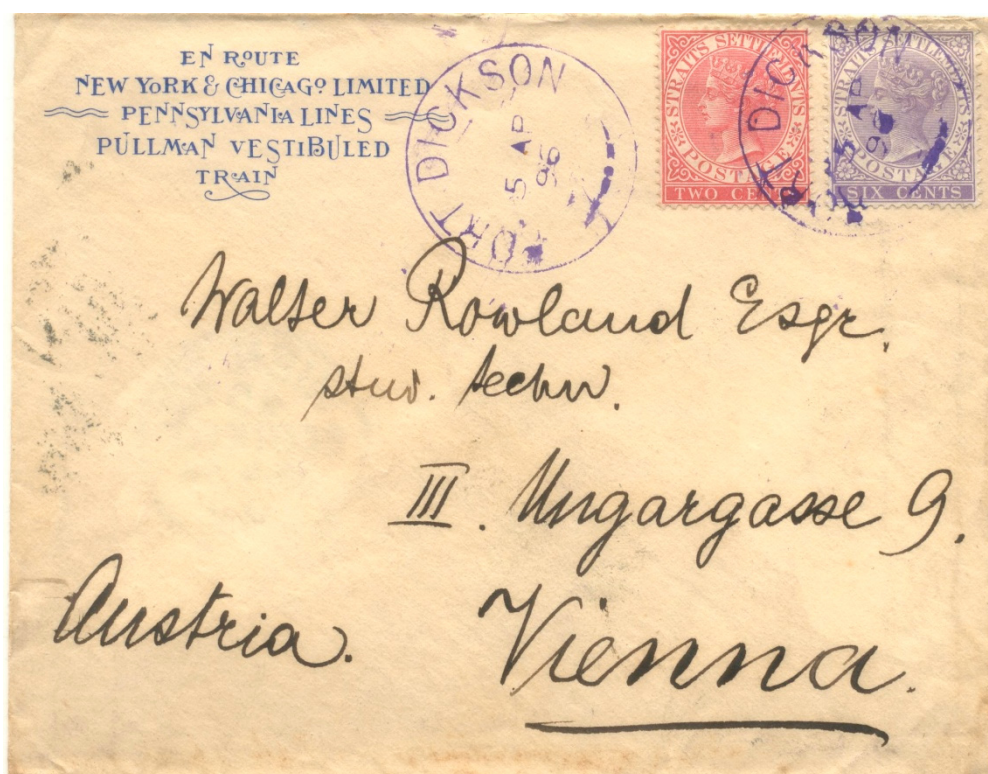 EN ROUTE
NEW YORK & CHICAGO LIMITED
PENNSYLVANIA LINES
PULLMAN VESTIBULED
TRAIN
PORT DICKSON
5 AP
STRAITS SETTLEMENTS
POSTAGE
TWO CENTS
STRAITS SETTLEMENTS
POSTAGE
SIX CENTS
PORT DICKSON
AP
Walter Rowland Esqr.
stud. techn.
III. Ungargasse 9.
Austria.
Vienna.